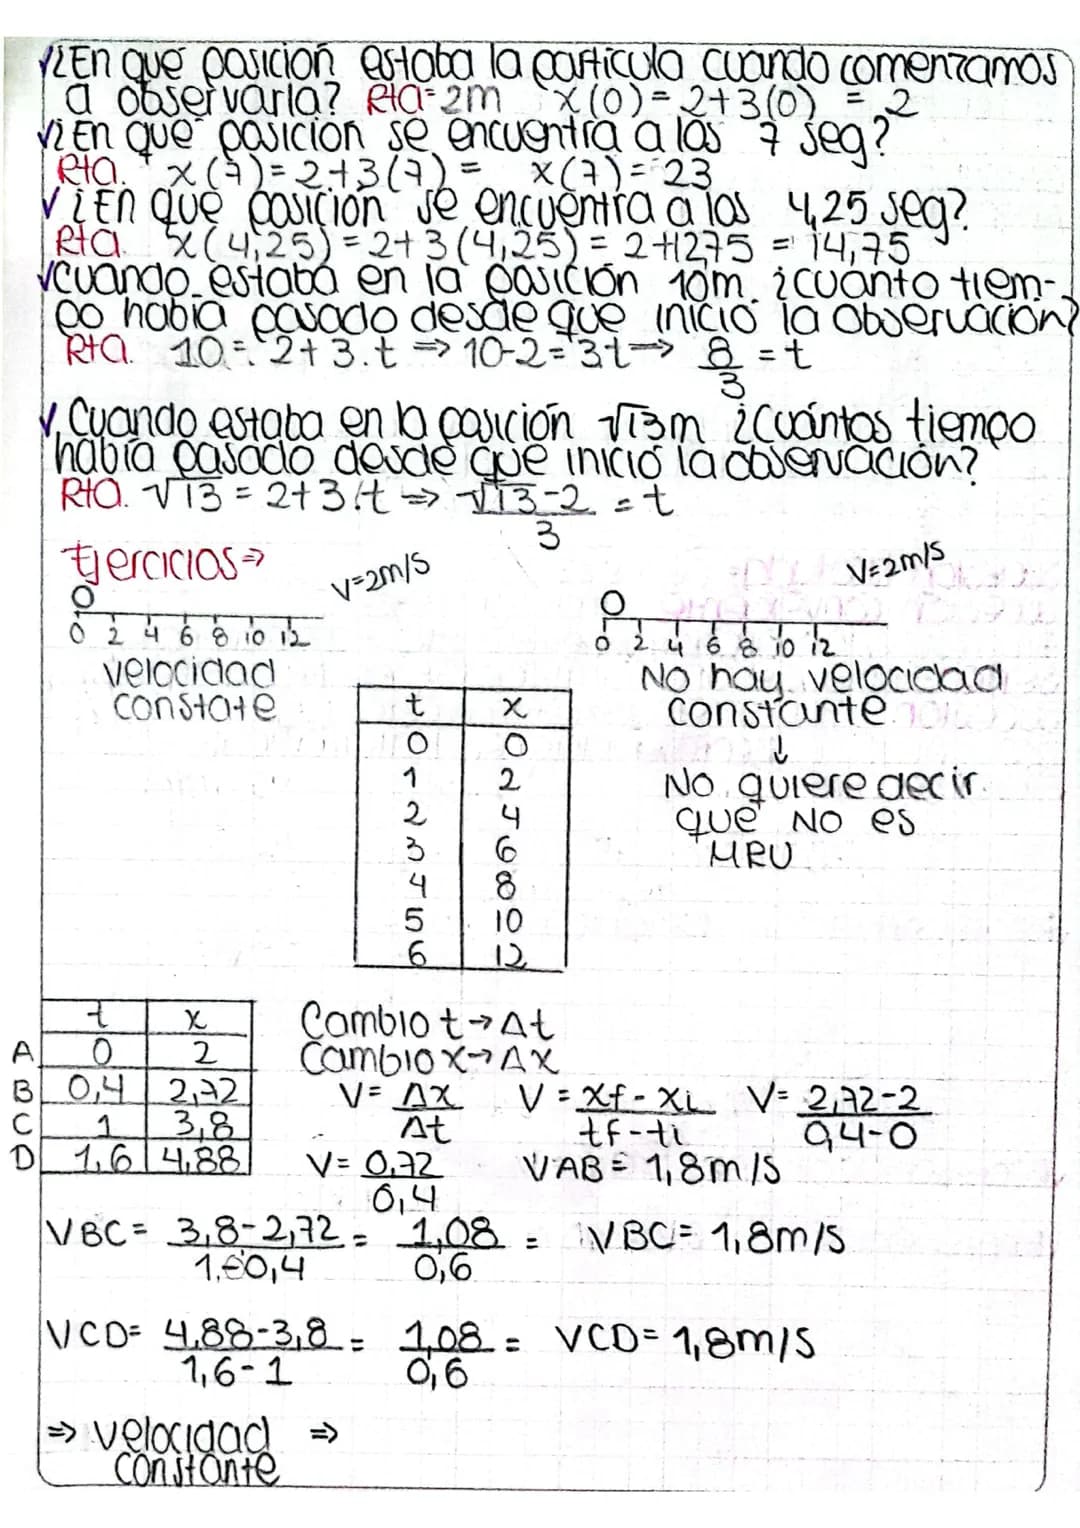 √¿En qué posición estaba la partícula cuando comenzamos
a observarla? Rta=2m x(0)=2+3(0) = 2
√¿En qué posición se encuentra a los 7 seg?
Rta. x(7)=2+3(7)= x(7)=23
√¿En qué posición se encuentra a los 4,25 seg?
Rta. x(4,25)=2+3(4,25)=2+1275 = 14,75
√Cuando estaba en la posición 10m. ¿cuánto tiem-
po había pasado desde que inició la observación?
Rta. 10= 2+3.t ⇒ 10-2=3t ⇒ 8/3 = t
√Cuando estaba en la posición √13m ¿Cuántos tiempo
había pasado desde que inició la observación?
Rta. √13 = 2+3.t ⇒ √13-2/3 = t
Ejercicios⇒
V=2m/s
V=2m/s
0 2 4 6 8 10 12
0 2 4 6 8 10 12
velocidad
constate
No hay velocidad
constante
↓
No quiere decir
que NO es
MRU
t x
0 0
1 2
2 4
3 6
4 8
5 10
6 12
t x
A 0 2
B 0,4 2,72
C 1 3,8
D 1,6 4,88
Cambio t→Δt
Cambio x→Δx
V= Δx/Δt V = xf-xi/tf-ti V= 2,72-2/0,4-0
V= 0,72/0,4 VAB= 1,8m/s
VBC= 3,8-2,72/1,00,4 = 1,08/0,6 = VBC= 1,8m/s
VCD= 4,88-3,8/1,6-1 = 1,08/0,6 = VCD= 1,8m/s
⇒ velocidad ⇒
constante